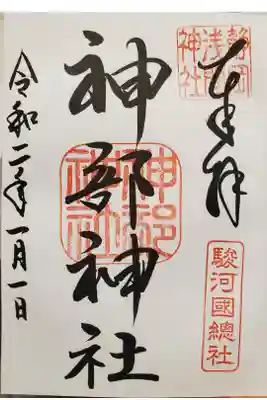 奉拝
静岡
浅間
神社
駿河國總社
神部神社
神部
神社
令和二年一月一日